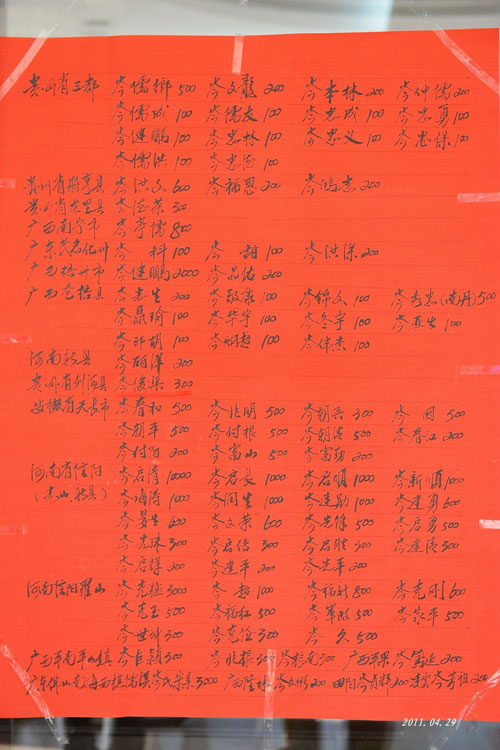 贵州省三都 岑儒乡500 岑文龍200 岑本林200 岑仲儒200
岑儒成100 岑儒友100 岑忠成100 岑忠勇100
岑建鹏100 岑忠林100 岑忠义100 岑忠保100
岑儒洪100 岑忠 100
贵州省册亨县 岑洪文600 岑福恩200 岑鸿志200
贵州省龙里县 岑 荣300
广西南宁市 岑亭儒800
广东茂名化州 岑科100 岑甜100 岑洪深200
广西梧州市 岑健鹏2000 岑品佑200
广西苍梧县 岑光生200 岑敬荣100 岑锦文100 岑 忠(南丹)500
岑鼎瑜100 岑华宇100 岑冬宇100 岑正生100
岑邵胡100 岑 超100 岑伟杰100
河南新县 岑丽萍200
贵州省利河县 岑俊渠300
安徽省天长市 岑春和500 岑兆明500 岑朝兵300 岑国500
岑朝平500 岑付根500 岑朝涛500 岑春江200
岑付阳200 岑富山500 岑富 200
河南省信阳 岑启清10000 岑启长1000 岑启顺1000 岑新顺1000
(光山新县) 岑海涛1000 岑润生1000 岑建勋1000 岑建勇600
岑晏生600 岑文荣600 岑先锋500 岑启勇500
岑先味300 岑启信300 岑启胜300 岑建涛300
岑启辉200 岑建平200 岑光平200
河南信阳罗山 岑克植3000 岑勤1000 岑福新800 岑克刚600
岑克玉500 岑福红500 岑军 500 岑家平500
岑世仲300 岑克俭300 岑久500
广西平南平山镇 岑巨颖300 岑兆振300 岑振南300 广西平果 岑 延200
广东佛山南海西樵儒溪岑火荣 3000 广西隆林岑文彬200 田阳岑 辉200 凌云岑 祖200
2011.04.29